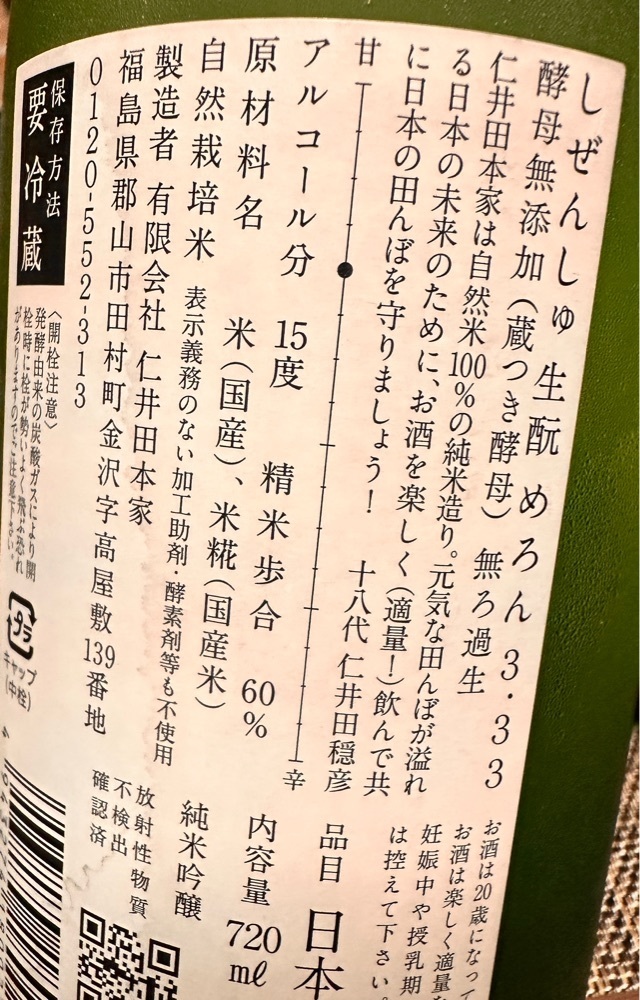 しぜんしゅ 生酛 めろん 3.33
酵母無添加(蔵つき酵母) 無ろ過生
仁井田本家は自然米100%の純米造り。元気な田んぼが溢れ
る日本の未来のために、お酒を楽しく(適量!)飲んで共
に日本の田んぼを守りましょう! 十八代 仁井田穏彦
甘
辛
アルコール分 15度 精米歩合 60%
原材料名 米(国産)、米糀(国産米)
自然栽培米 表示義務のない加工助剤・酵素剤等も不使用
製造者 有限会社 仁井田本家
福島県郡山市田村町金沢字高屋敷139番地
0120-552-313
保存方法
要冷蔵
〈開栓注意〉
発酵由来の炭酸ガスにより開
栓時に栓が勢いよく飛ぶ恐れ
がありますのでご注意下さい。
プラ
キャップ
(中栓)
お酒は20歳になって
お酒は楽しく適量を
妊娠中や授乳期
は控えて下さい。
品目 日本
内容量 720㎖
純米吟醸
放射性物質
不検出
確認済